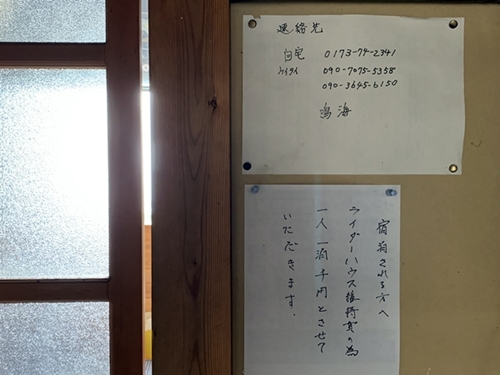 連絡先
自宅 0173-74-2341
ケイタイ 090-7075-5358
090-3645-6150
鳴海
宿泊される方へ
ライダーハウス維持費の為
一人一泊千円とさせて
いただきます.